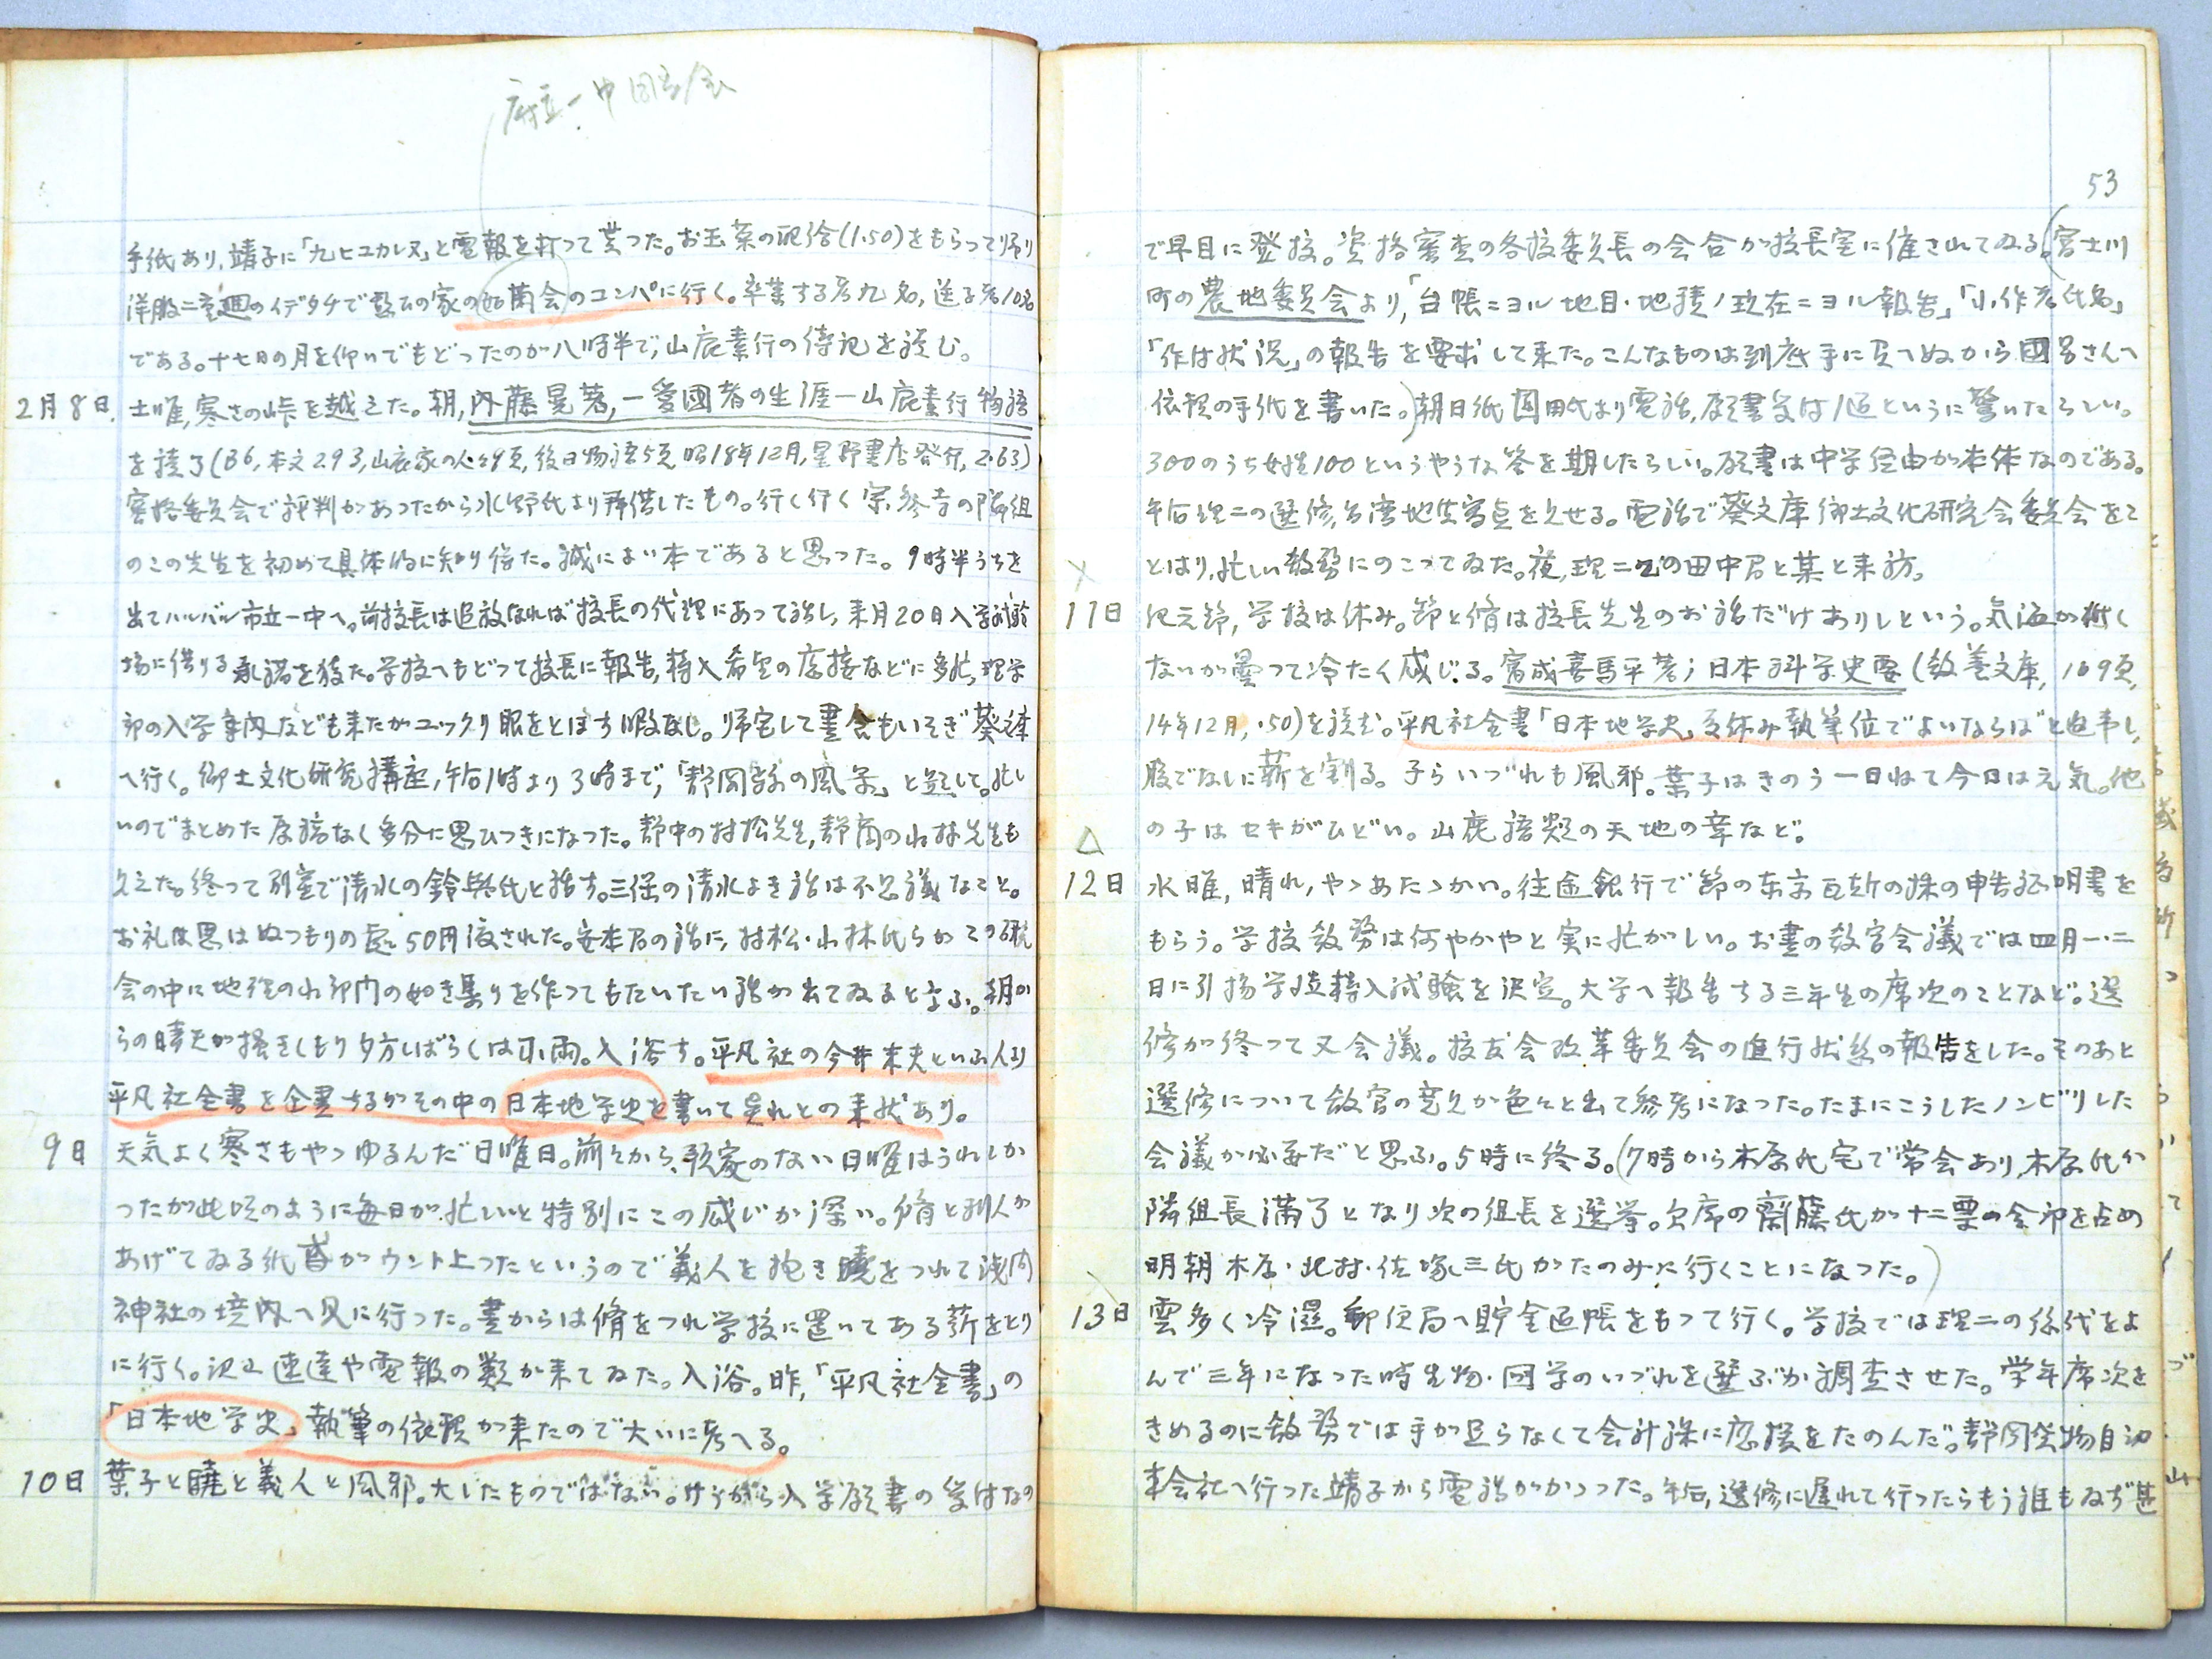 府立一中同窓会
手紙あり、靖子に「九ヒユカレヌ」と電報を打つて貰つた。お玉菜の配給(1.50)をもらつて帰り
洋服二重廻のイデタチで 家の 蘭会のコンパに行く。卒業する者九名,送る者10名
である。十七日の月を仰いでもどつたのが八時半で,山鹿素行の傳記を読む。
2月8日. 土曜,寒さの峠を越えた。朝,内藤晃著,一愛國者の生涯ー山鹿素行物語
を読了(B6,本文293,山鹿家の人々 頁,後日物語5頁 昭18年12月,星野書店發行,2.63)
審格委員会で評判があつたから水野氏より拝借したもの。行く行く宗参寺の隣組
のこの先生を初めて具体的に知り得た。誠によい本であると思つた。9時半うちを
出てハルバル市立一中へ。前校長は追放なれば校長の代理にあつて話し,来月20日入学試験
場に借りる承諾を得た。学校へもどつて校長に報告,轉入希望の應接などに多忙,理学
部の入学案内なども来たがユックリ眼をとほす暇なし。帰宅して晝食もいそぎ葵文庫
へ行く。郷土文化研究講座,午后1時より3時まで,「静岡縣の風景」と題して。忙し
いのでまとめた原稿なく多分に思ひつきになつた。静中の村松先生,静商の小林先生も
見えた。終つて別室で清水の鈴与氏と話す。三保の清水よき話は不思議なこと。
お礼は思はぬつもりの處50円渡された。安本君の話に,村松・小林氏らがこの研究
会の中に地理の小部門の如き集りを作つてもらいたい話が出てゐると云ふ。朝か
らの晴天が掻きくもり夕方しばらくは小雨。入浴す。平凡社の今井末夫といふ人より
平凡社全書を企畫するがその中の日本地学史を書いて呉れとの来状あり。
9日 天気よく寒さもやゝゆるんだ日曜日。前々から, のない日曜はうれしか
つたが此頃のように毎日が忙しいと特別にこの感じが深い。脩と 人が
あげてゐる紙鳶がウント上つたというので義人を抱き曉をつれて浅間
神社の境内へ見に行つた。晝からは脩をつれ学校に置いてある薪をとり
に行く。沢山速達や電報の類が来てゐた。入浴。昨,「平凡社全書」の
「日本地学史」執筆の依頼が来たので大いに考へる。
10日 葉子と曉と義人と風邪。大したものではない。けうから入学願書の受付なの
53
で早目に登校。資格審査の各校委員長の会合が校長室に催されてゐる。(富士川
町の農地委員会より,「台帳ニヨル地目・地積ノ現在ニヨル報告」「小作者氏名」
「作付状況」の報告を要求して来た。こんなものは到底手に負へぬから國 さんへ
依頼の手紙を書いた。)朝日紙園田氏より電話,願書受付1通というに驚いたらしい。
300のうち女性100というやうな答を期したらしい。願書は中学経由が本体なのである。
午后理二の選修,台湾地生写真を見せる。電話で葵文庫郷土文化研究会委員会をこ
とはり,忙しい教務にのこつてゐた。夜,理二乙の田中君と某と来訪。
×
11日 紀元節,学校は休み。節と脩は校長先生のお話だけありしという。気温が低く
ないが曇つて冷たく感じる。富成喜馬平著;日本科学史要(教養文庫,169頁,
14年12月,.50)を読む。平凡社全書「日本地学史」夏休み執筆位でよいならばと返事し,
股でなしに薪を割る。子らいづれも風邪。葉子はきのう一日ねて今日は元気。他
の子はセキがひどい。山鹿語類の天地の章など。
△
12日 水曜,晴れ,やゝあたゝかい。往途銀行で節の東京瓦斯の株の申告証明書を
もらう。学校教務は何やかやと実に忙がしい。お晝の教官会議では四月一・二
日に引揚学徒轉入試験を決定。大学へ報告する三年生の席次のことなど。選
修が終つて又会議。校友会改革委員会の進行状態の報告をした。そのあと
選修について教官の意見が色々と出て参考になつた。たまにこうしたノンビリした
会議が必要だと思ふ。5時に終る。(7時から木原氏宅で常会あり,木原氏が
隣組長満了となり次の組長を選挙。欠席の齋藤氏が十二票の全部を占め
明朝木原・北村・佐塚三氏がたのみに行くことになつた。)
13日 雲多く冷湿。郵便局へ貯金通帳をもつて行く。学校では理二の総代をよ
んで三年になつた時生物・図学のいづれを選ぶか調査させた。学年席次を
きめるのに教務では手が足らなくて会計課に應援をたのんだ。静岡貨物自動
車会社へ行つた靖子から電話がかゝつた。午后,選修に遅れて行つたらもう誰もゐず甚